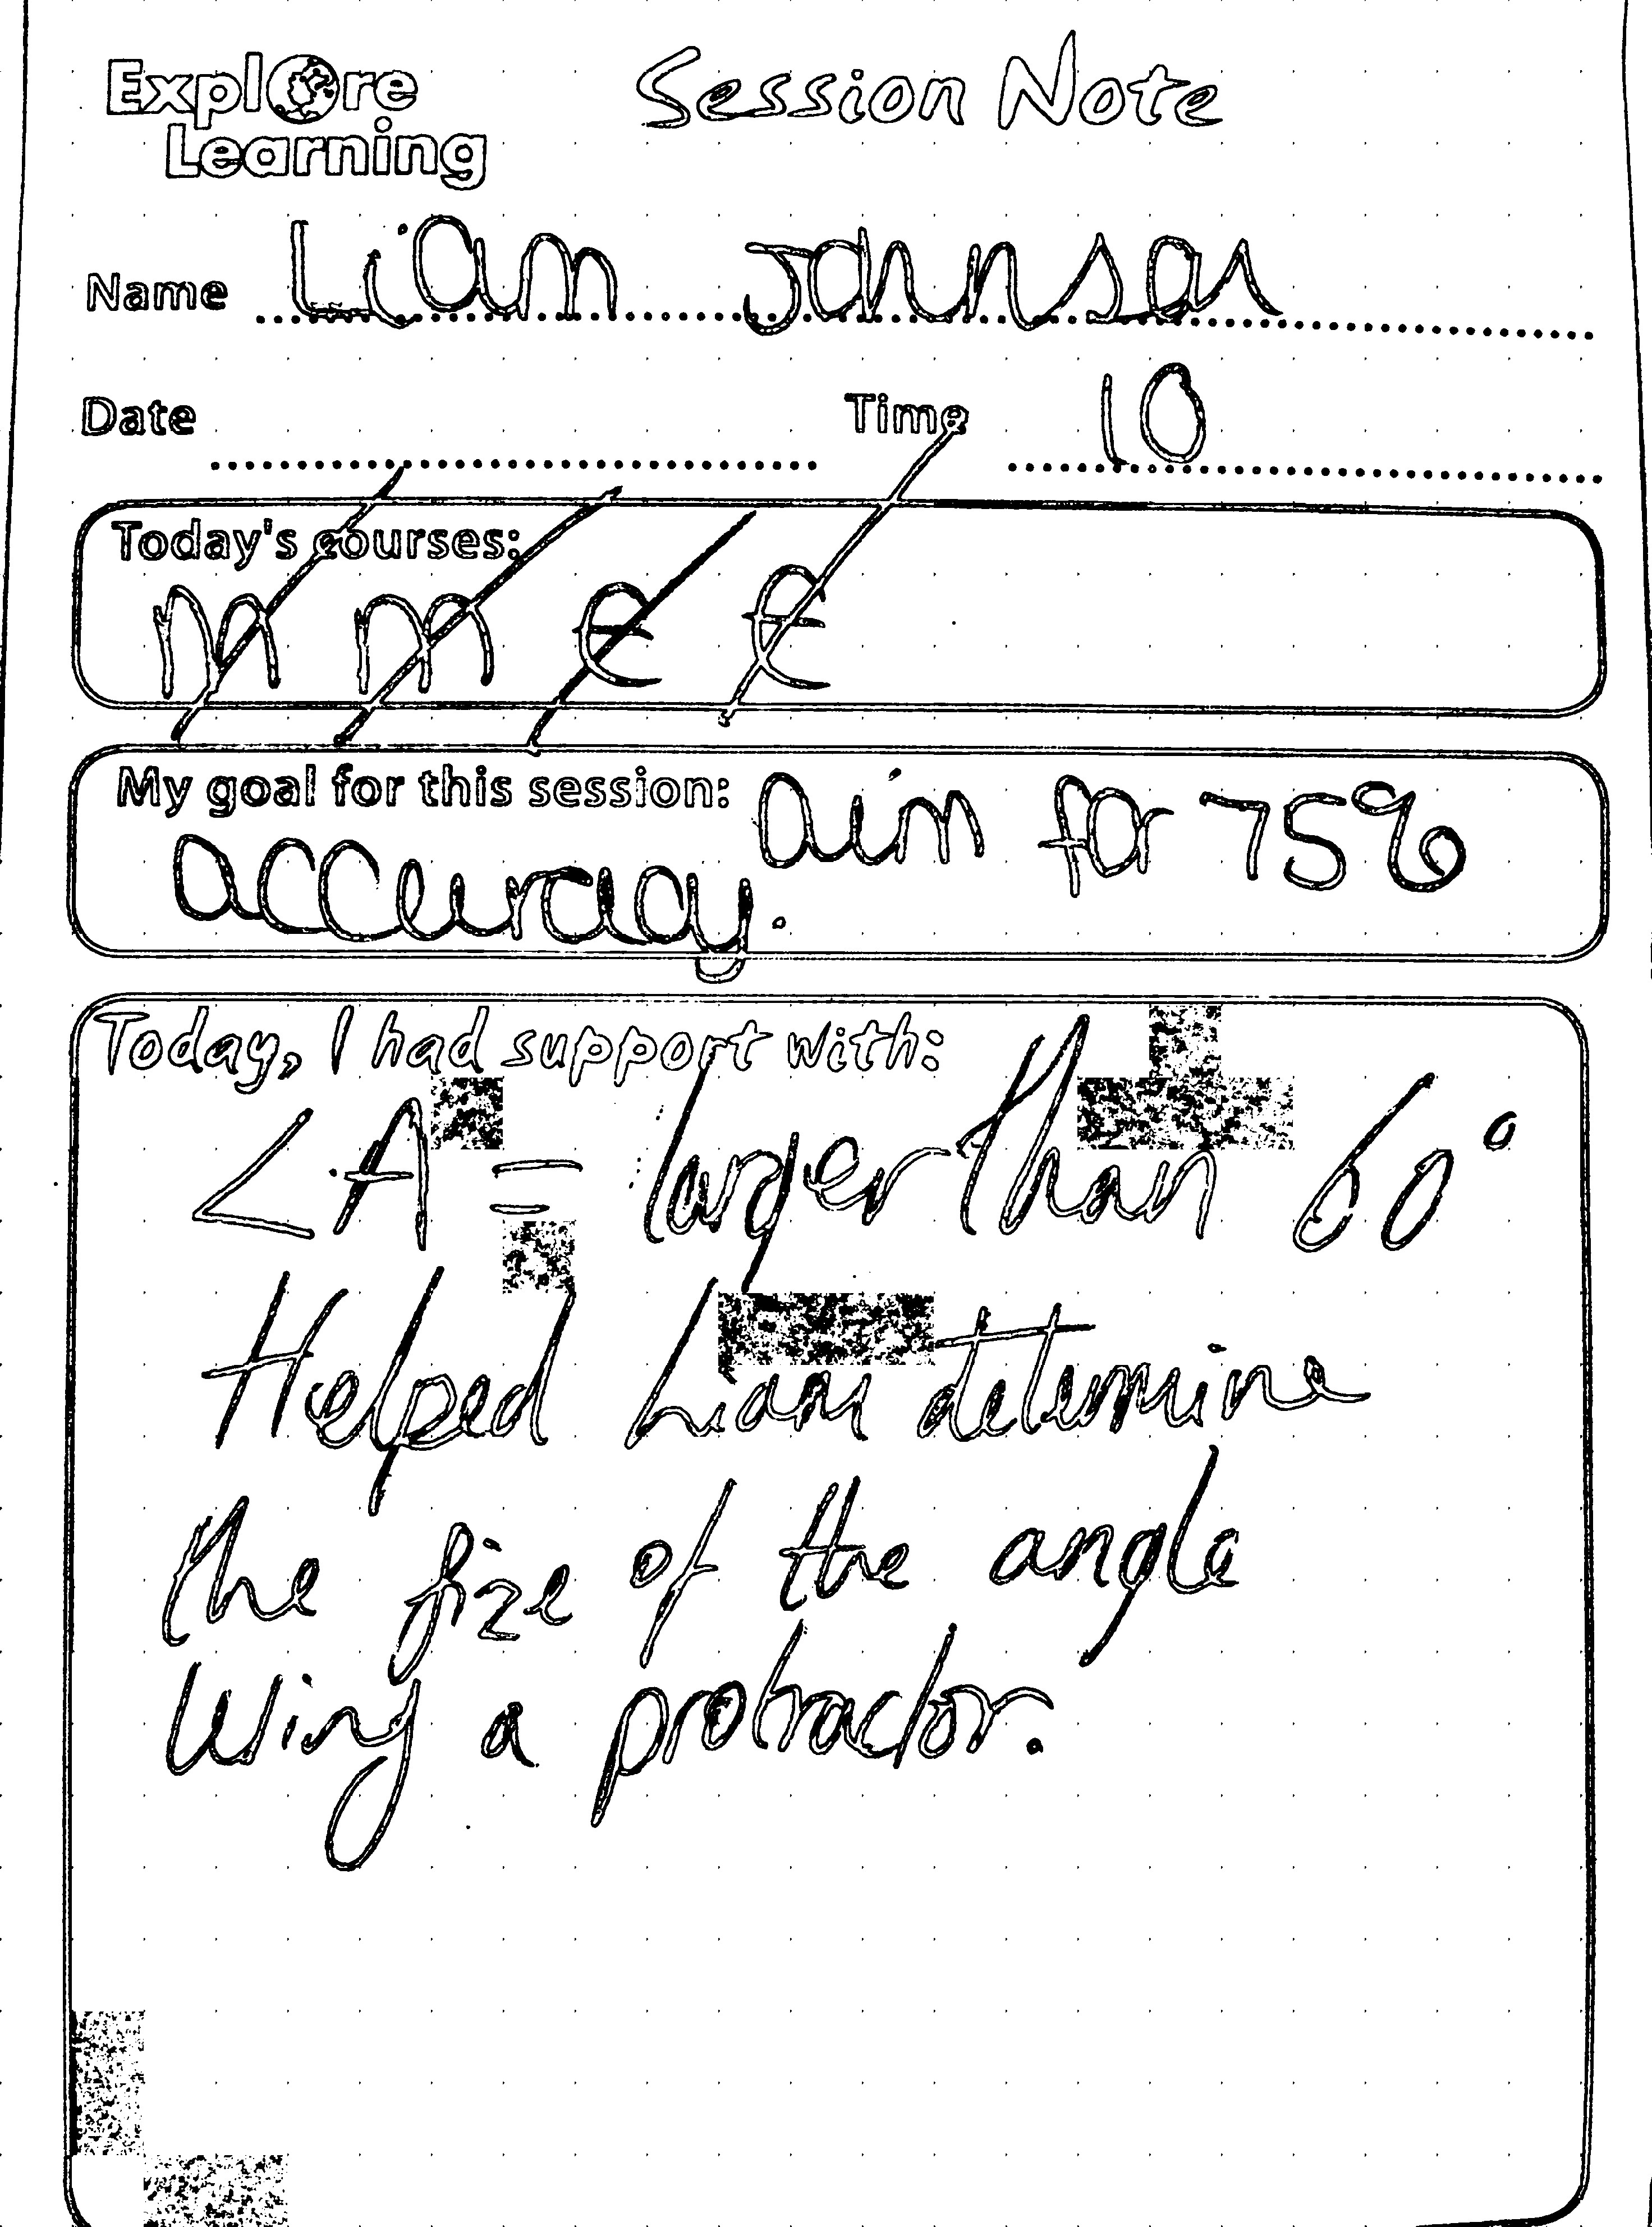 Explore
Learning
Session Note
Name Liam Johnson
Date Time 10
Today's courses:
M M E E
My goal for this session: aim for 75%
accuracy.
Today, I had support with:
∠A = larger than 60°
Helped Liam determine
the size of the angle
using a protractor.